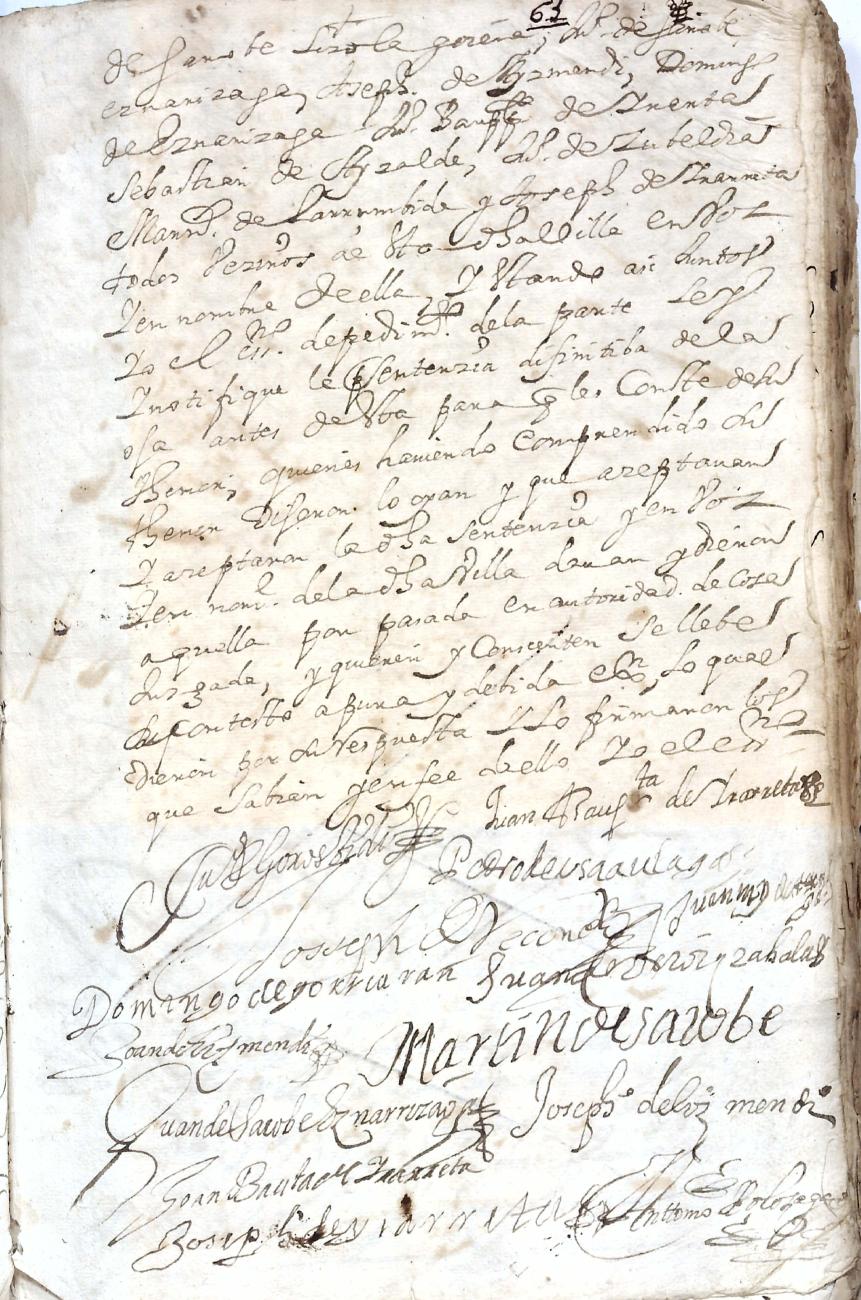 61
de Sarobe Lizola goiena, Ju.º de Sarobe
eznarizaga, Joseph. de Yzmendi, Domingo
de Eznarizaga Ju.º Baupta de Yrarreta
Sebastian de Ayzalde, Ju.º de Zubeldia
Marn. de Larrumbide y Joseph de Yrarreta
todos Vezinos de sta dha Villa en Voz
Y en nombre de ella, Y stando asi Juntos
Yo el essno. de pedimto. de la parte Ley
Y notifique la Sentenzia difinitiba de la
oja antes de sta para q les Conste de su
thenor, quienes haviendo Comprendido su
thenor Dijeron. lo oyan y que azeptavan
Y azeptaron la dha Sentenzia y en Voz
Y en nome. de la dha Villa davan y dieron
aquella por pasada en autoridad. de Cosa
Juzgada, y quieren y Consienten se llebe
su Contesto a pura y debida exon, Lo qual
dieron por su respuesta Y Lo firmaron los
que Sabian y en fee de ello Yo el essno
Juan Baupta de Yrarreta
Pedro de usaaulaga
Joseph de
Domingo de gorriaran Juan de zabala
Joan de Yzmendi Martin de Sarobe
Juan de Sarobe Eznarrizaga Joseph de Ezmendi
Joan Bautta de Yrarreta
Joseph de yrarreta Anttonio